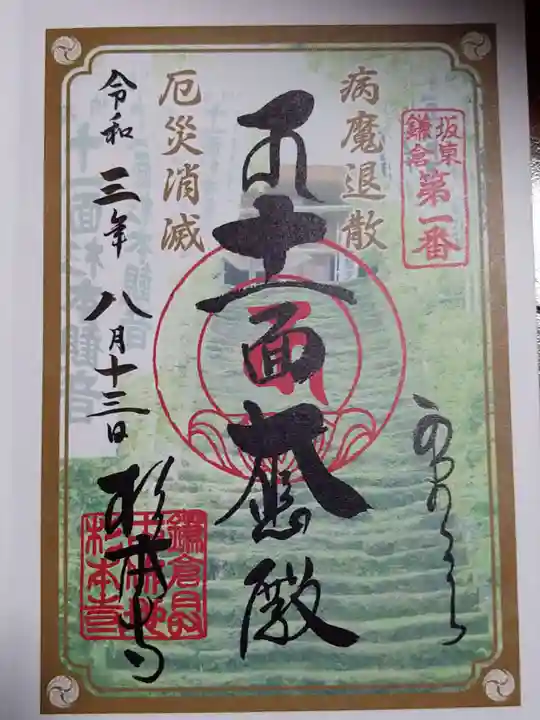 坂東
鎌倉
第一番
病魔退散
十一面大悲殿
厄災消滅
令和三年八月十三日
杉本寺